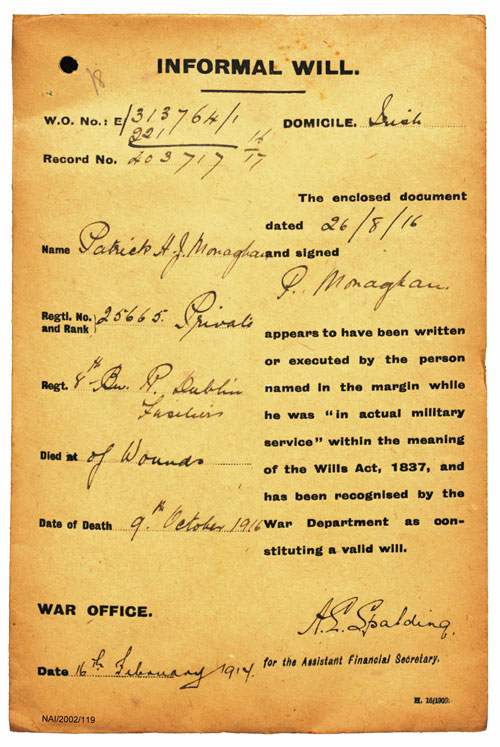 18
INFORMAL WILL.
W.O. No.: E/313764/1
221
Record No. 403717 16/17
DOMICILE. Irish
The enclosed document
dated 26/8/16
and signed
P. Monaghan.
appears to have been written
or executed by the person
named in the margin while
he was "in actual military
service" within the meaning
of the Wills Act, 1837, and
has been recognised by the
War Department as con-
stituting a valid will.
Name Patrick H. J. Monaghan
Regtl. No. and Rank } 25665. Private
Regt. 8th Bn. R. Dublin
Fusiliers
Died at of Wounds
Date of Death 9th October 1916
WAR OFFICE.
Date 16th February 1917.
A.E. Spalding.
for the Assistant Financial Secretary.
H. 16/1905.
NAI/2002/119